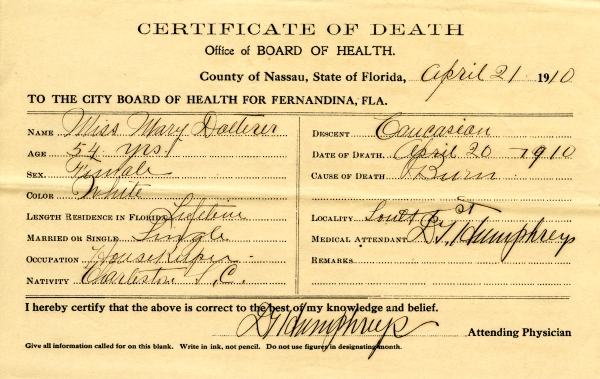 CERTIFICATE OF DEATH
Office of BOARD OF HEALTH.
County of Nassau, State of Florida, April 21 1910
TO THE CITY BOARD OF HEALTH FOR FERNANDINA, FLA.
NAME Miss Mary
AGE 54 yrs
SEX Female
COLOR White
LENGTH RESIDENCE IN FLORIDA Lifetime
MARRIED OR SINGLE Single
OCCUPATION
NATIVITY Charleston S.C.
DESCENT Caucasian
DATE OF DEATH April 20 - 1910
CAUSE OF DEATH Burn
LOCALITY South St
MEDICAL ATTENDANT Humphreys
REMARKS
I hereby certify that the above is correct to the best of my knowledge and belief.
Humphreys Attending Physician
Give all information called for on this blank. Write in ink, not pencil. Do not use figures in designating month.